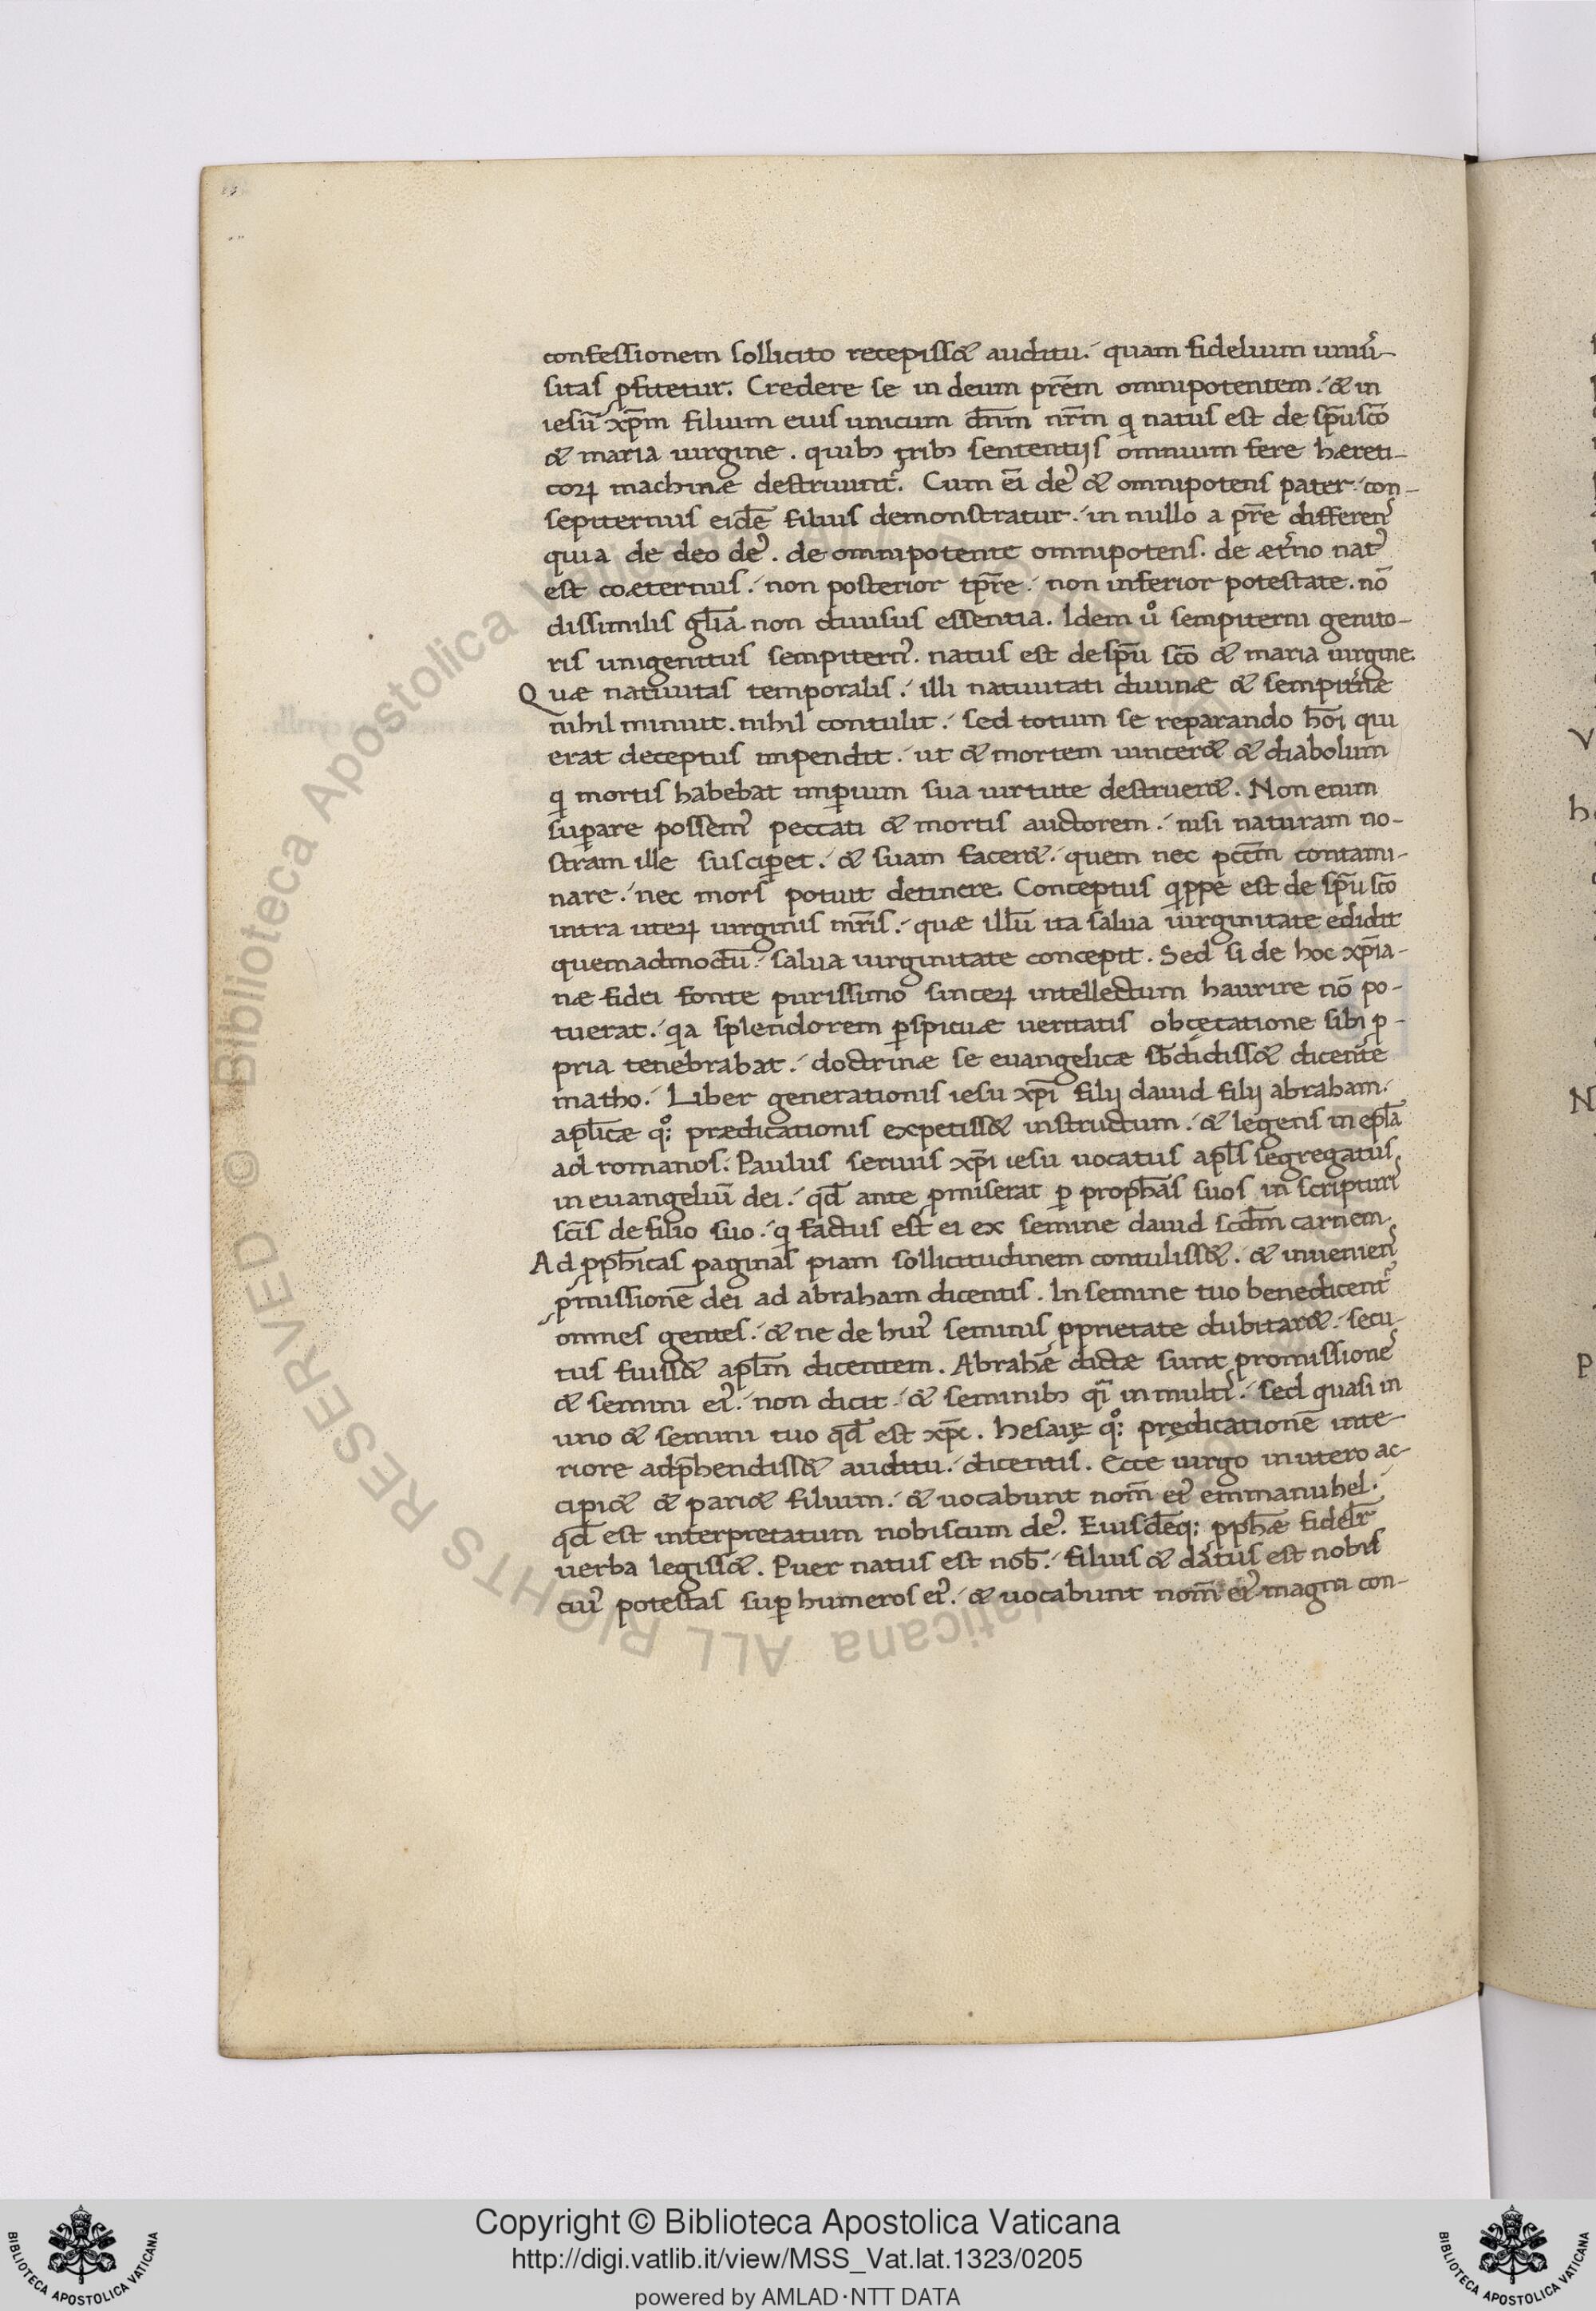 confessionem sollicito recepiss& auditu. quam fidelium uniũ-
sitas ꝓfitetur. Credere se in deum prẽm omnipotentem. & in
iesũ xp̃m filium eius unicum dñm nrm̃ q natus est de sp̃u sc̃o
& maria uirgine. quibꝫ tribꝫ sententijs omnium fere hæreti-
coꝝ machinæ destruunt᷑. Cum ẽi deꝰ & omnipotens pater. con-
sepiternus eidẽ filius demonstratur. in nullo a pr̃e differenꝰ
quia de deo deꝰ. de omnipotente omnipotens. de æt̃no natꝰ
est coæternus. non posterior tp̃re. non inferior potestate. nõ
dissimilis gl̃ia non diuisus essentia. Idem uͦ sempiterni genito-
ris unigenitus sempiternꝰ. natus est de sp̃u sc̃o & maria uirgine.
Quæ natiuitas temporalis. illi natiuitati diuinæ & sempit̃næ
nihil minuit. nihil contulit. sed totum se reparando hõi qui
erat deceptus impendit. ut & mortem uincer& & diabolum
q mortis habebat imꝑium sua uirtute destruer&. Non enim
suꝑare possemꝰ peccati & mortis auctorem. nisi naturam no-
stram ille susciꝑet. & suam facer&. quem nec pcc̃m contami-
nare. nec mors potuit detinere. Conceptus qppe est de sp̃u sc̃o
intra uteꝝ uirginis mr̃is. quæ illũ ita salua uirginitate edidit
quemadmodũ salua uirginitate concepit. Sed si de hoc xp̃ia-
næ fidei fonte purissimo sinceꝝ intellectum haurire nõ po-
tuerat. qa splendorem ꝑspicuæ ueritatis obcęcatione sibi ꝓ-
pria tenebrabat. doctrinæ se euangelicæ sb̃didiss& dicente
matho. Liber generationis iesu xp̃i filij dauid filij abraham.
apl̃icæ qͦ; prædicationis expetiss& instructum. & legens in epl̃a
ad romanos. Paulus seruus xp̃i iesu uocatus apl̃s segregatus
in euangeliũ dei. qd̃ ante ꝓmiserat ꝑ proph̃as suos in scripturꝭ
sc̃is de filio suo. q factus est ei ex semine dauid scd̃m carnem.
Ad ꝓph̃icas paginas piam sollicitudinem contuliss&. & inuenienꝰ
ꝓmissionẽ dei ad abraham dicentis. In semine tuo benedicent᷑
omnes gentes. & ne de huiꝰ seminis ꝓprietate dubitar&. secu-
tus fuiss& apl̃m dicentem. Abrahẽ dictæ sunt promissione
& semini eiꝰ. non dicit. & seminibꝫ q̃i in multꝭ. sed quasi in
uno & semini tuo qd̃ est xp̃c. hesaię qͦ; prędicationẽ inte-
riore adp̃hendiss& auditu. dicentis. Ecce uirgo in utero ac-
cipi& & pari& filium. & uocabunt nom̃ eiꝰ emmanuhel.
qd̃ est interpretatum nobiscum deꝰ. Eiusdẽq; ꝓph̃æ fidelr̃
uerba legiss&. Puer natus est nob̃. filius & datus est nobis
cuiꝰ potestas suꝑ humeros eiꝰ. & uocabunt nom̃ eiꝰ magni con-
Copyright © Biblioteca Apostolica Vaticana
http://digi.vatlib.it/view/MSS_Vat.lat.1323/0205
powered by AMLAD·NTT DATA